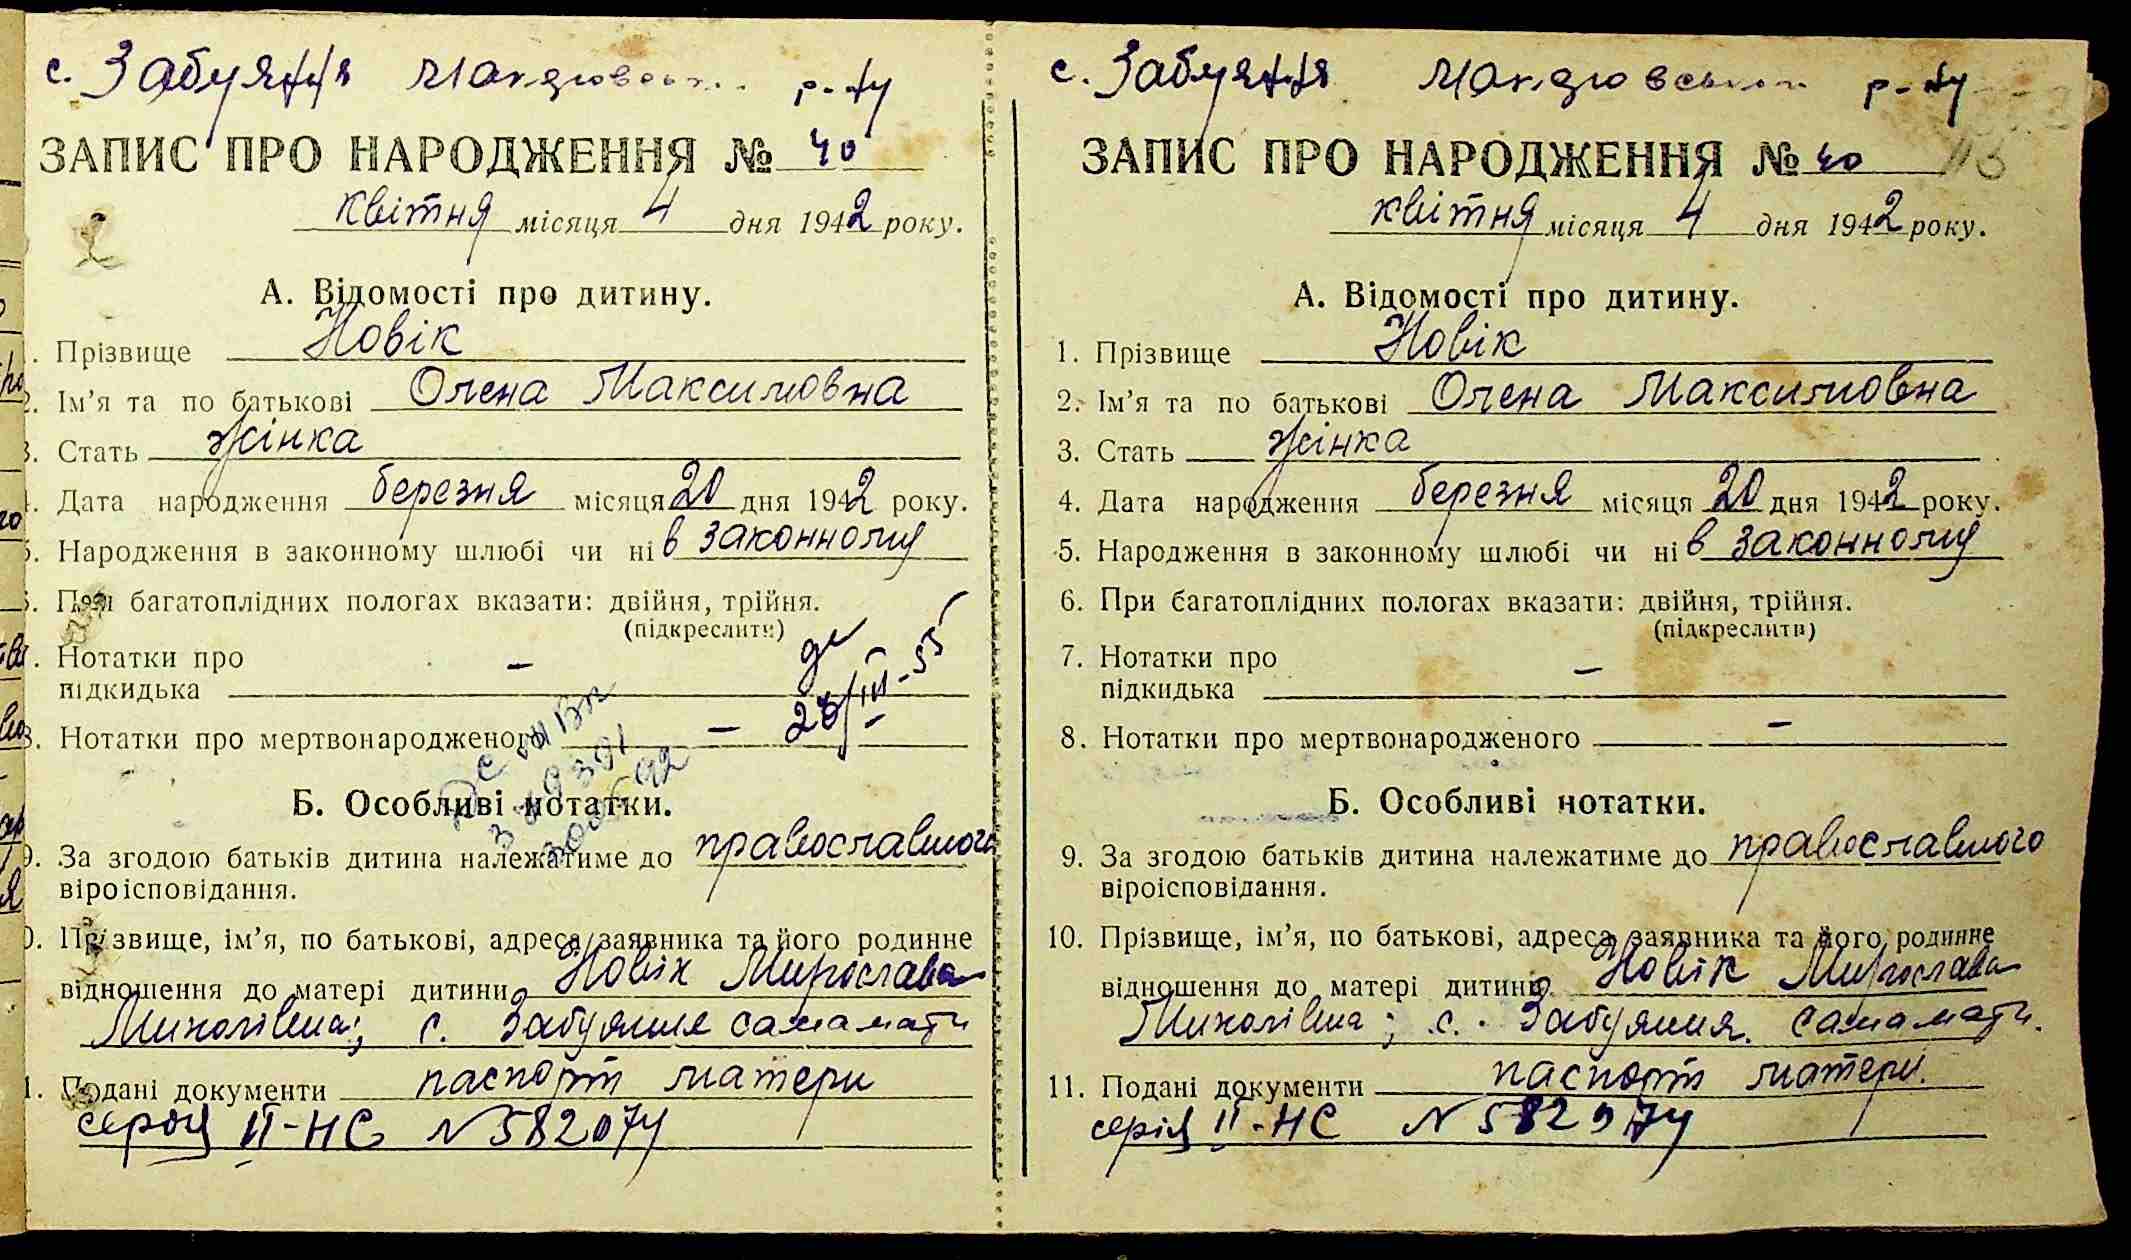 с. Забуяння р-ну
ЗАПИС ПРО НАРОДЖЕННЯ № 40
квітня місяця 4 дня 1942 року.
А. Відомості про дитину.
Прізвище Новік
2. Ім’я та по батькові Олена Максимовна
3. Стать жінка
4. Дата народження березня місяця 20 дня 1942 року.
5. Народження в законному шлюбі чи ні в законному
6. При багатоплідних пологах вказати: двійня, трійня.
(підкреслити)
7. Нотатки про
підкидька –
28/III-55
8. Нотатки про мертвонародженого –
Б. Особливі нотатки.
9. За згодою батьків дитина належатиме до православного
віроісповідання.
10. Прізвище, ім’я, по батькові, адреса заявника та його родинне
відношення до матері дитини Новік Мирослава
Миколівна; с. Забуяння сама мати
11. Подані документи паспорт матери
серія II-НС N 582074
с. Забуяння р-ну
ЗАПИС ПРО НАРОДЖЕННЯ № 40
квітня місяця 4 дня 1942 року.
А. Відомості про дитину.
1. Прізвище Новік
2. Ім’я та по батькові Олена Максимовна
3. Стать жінка
4. Дата народження березня місяця 20 дня 1942 року.
5. Народження в законному шлюбі чи ні в законному
6. При багатоплідних пологах вказати: двійня, трійня.
(підкреслити)
7. Нотатки про
підкидька –
8. Нотатки про мертвонародженого –
Б. Особливі нотатки.
9. За згодою батьків дитина належатиме до православного
віроісповідання.
10. Прізвище, ім’я, по батькові, адреса заявника та його родинне
відношення до матері дитини Новік Мирослава
Миколівна; с. Забуяння. сама мати.
11. Подані документи паспорт матери.
серія II-НС N 582074